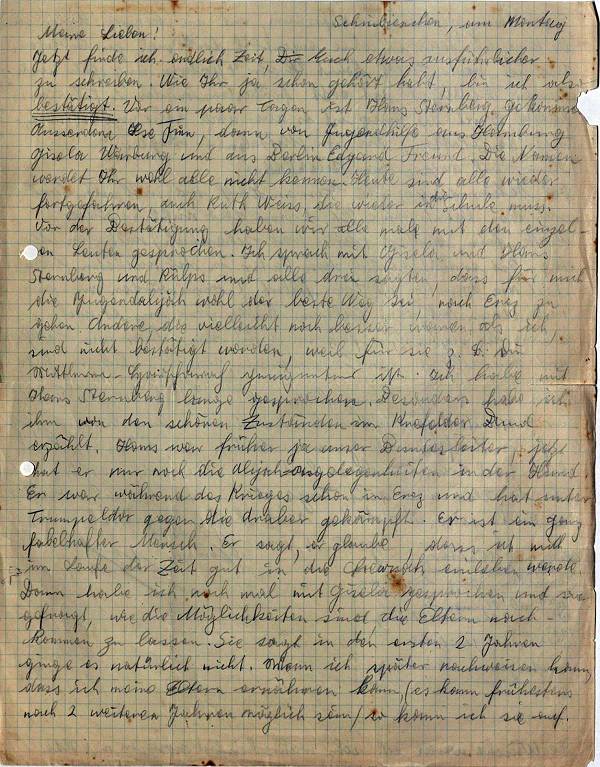 Schniebinchen, am Montag
Meine Lieben!
Jetzt finde ich endlich Zeit, Euch etwas ausführlicher
zu schreiben. Wie Ihr ja schon gehört habt, bin ich also
bestätigt. Vor ein paar Tagen ist Hans Sternberg gekommen
Ausserdem Ilse, dann von Jugendhilfe aus Hamburg
Gisela Warburg und aus Berlin Edgard Freund. Die Namen
werdet Ihr wohl alle nicht kennen. Heute sind alle wieder
fortgefahren, auch Ruth Weiss, die wieder in die Schule muss.
Vor der Bestätigung haben wir alle male mit den einzel-
en Leuten gesprochen. Ich sprach mit Gisela und Hans
Sternberg und und alle drei sagten, dass für mich
die Jugendalijah wohl der beste Weg sei nach Erez zu
gehen. Andere, die vielleicht noch besser waren als ich,
sind nicht bestätigt worden, weil für sie z. B. die
Mittleren- ist. Ich habe mit
Hans Sternberg lange gesprochen. Besonders habe ich
ihm von den schönen Zuständen im Krefelder Bund
erzählt. Hans war früher ja unser Bundesleiter, jetzt
hat er nur noch die Alijah-angelegenheiten in der Hand
Er war während des Krieges schon in Erez und hat unter
Trumpeldor gegen die Araber gekämpft. Er ist ein ganz
fabelhafter Mensch. Er sagt, er glaube, dass ich mich
im Laufe der Zeit gut in die Chewrah einleben werde.
Dann habe ich noch mal mit Gisela gesprochen und sie
gefragt, wie die Möglichkeiten sind die Eltern nach-
kommen zu lassen. Sie sagt in den ersten 2 Jahren
ginge es natürlich nicht. Wenn ich später nachweisen kann,
dass ich meine Eltern ernähren kann, (es kann frühestens
nach 2 weiteren Jahren möglich sein) so kann ich sie anf.